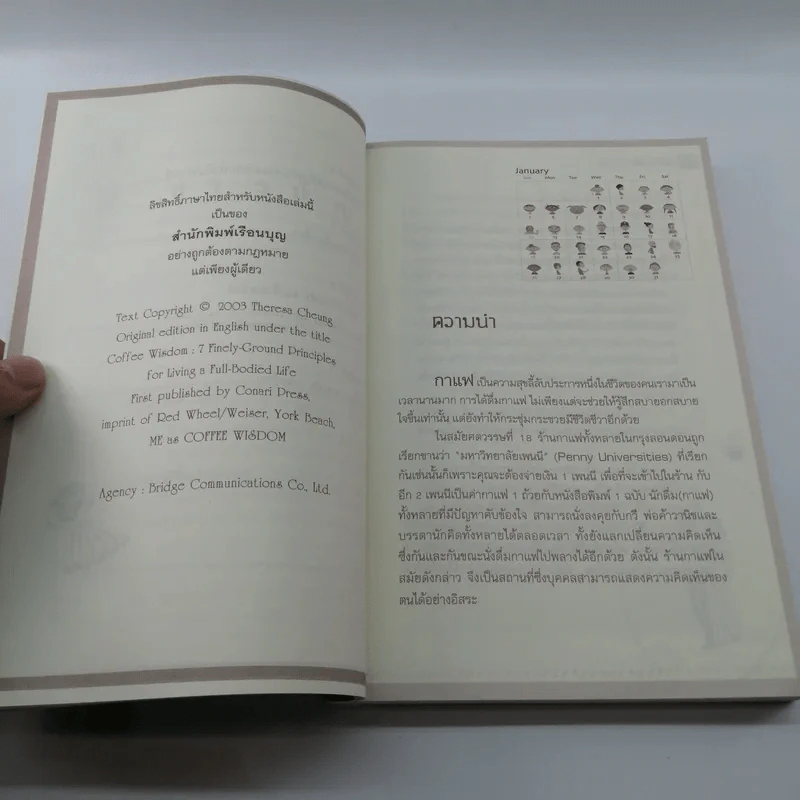 ลิขสิทธิ์ภาษาไทยสำหรับหนังสือเล่มนี้
เป็นของ
สำนักพิมพ์เรือนบุญ
อย่างถูกต้องตามกฎหมาย
แต่เพียงผู้เดียว
Text Copyright © 2003 Theresa Cheung
Original edition in English under the title
Coffee Wisdom : 7 Finely-Ground Principles
for Living a Full-Bodied Life
First published by Conari Press,
imprint of Red Wheel/Weiser, York Beach,
ME as COFFEE WISDOM
Agency : Bridge Communications Co., Ltd.
January
Sun Mon Tue Wed Thu Fri Sat
ความนำ
กาแฟ เป็นความสุขลี้ลับประการหนึ่งในชีวิตของคนเรามาเป็น
เวลานานมาก การได้ดื่มกาแฟ ไม่เพียงแต่จะช่วยให้รู้สึกสบายอกสบาย
ใจขึ้นเท่านั้น แต่ยังทำให้กระชุ่มกระชวยมีชีวิตชีวาอีกด้วย
ในสมัยศตวรรษที่ 18 ร้านกาแฟทั้งหลายในกรุงลอนดอนถูก
เรียกขานว่า "มหาวิทยาลัยเพนนี" (Penny Universities) ที่เรียก
กันเช่นนั้นก็เพราะคุณจะต้องจ่ายเงิน 1 เพนนี เพื่อที่จะเข้าไปในร้าน กับ
อีก 2 เพนนีเป็นค่ากาแฟ 1 ถ้วยกับหนังสือพิมพ์ 1 ฉบับ นักดื่ม(กาแฟ)
ทั้งหลายที่มีปัญหาคับข้องใจ สามารถนั่งลงคุยกับกวี พ่อค้าวานิชและ
บรรดานักคิดทั้งหลายได้ตลอดเวลา ทั้งยังแลกเปลี่ยนความคิดเห็น
ซึ่งกันและกันขณะนั่งดื่มกาแฟไปพลางได้อีกด้วย ดังนั้น ร้านกาแฟใน
สมัยดังกล่าว จึงเป็นสถานที่ซึ่งบุคคลสามารถแสดงความคิดเห็นของ
ตนได้อย่างอิสระ